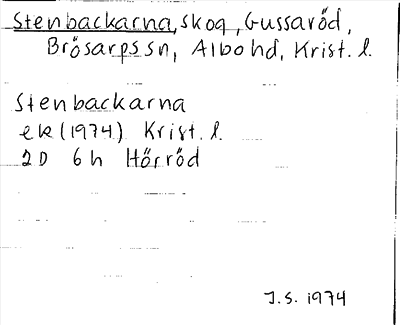 Stenbackarna, skog, Gussaröd,
Brösarps sn, Albo hd, Krist. l.
Stenbackarna
ek (1974) Krist. l.
2D 6h Hörröd
J.S. 1974